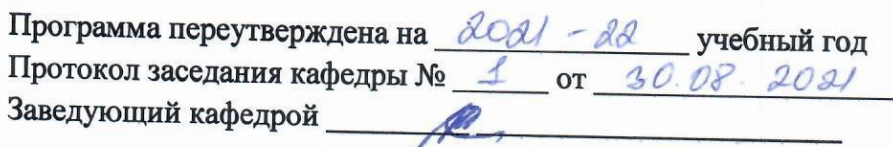 Программа переутверждена на 2021 - 22 учебный год
Протокол заседания кафедры № 1 от 30.08. 2021
Заведующий кафедрой